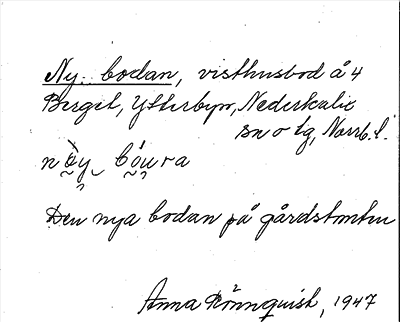 Ny- bodan, visthusbod å 4
Berget, Ytterbyn, Nederkalix
sn o tg, Norrb. l.
Den nya bodan på gårdstomten
Anna Rönnquist, 1947